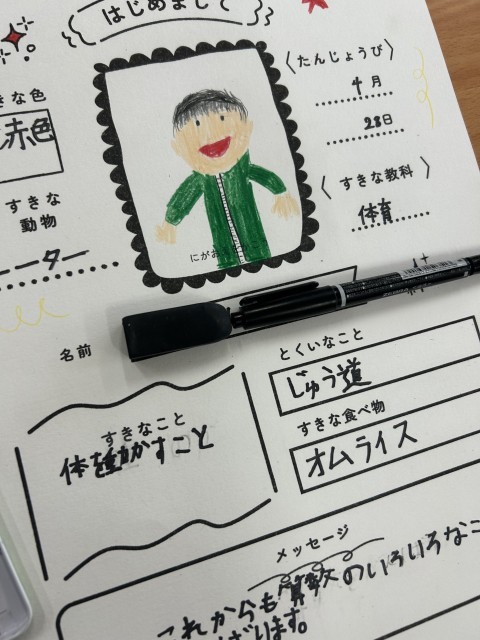 はじめまして
〈たんじょうび〉
4月
28日
きな色
赤色
すきな
動物
ーター
にがお
〈すきな教科〉
体育
名前
とくいなこと
じゅう道
すきなこと
体を動かすこと
すきな食べ物
オムライス
メッセージ
これからも算数のいろいろなこ
ばります。